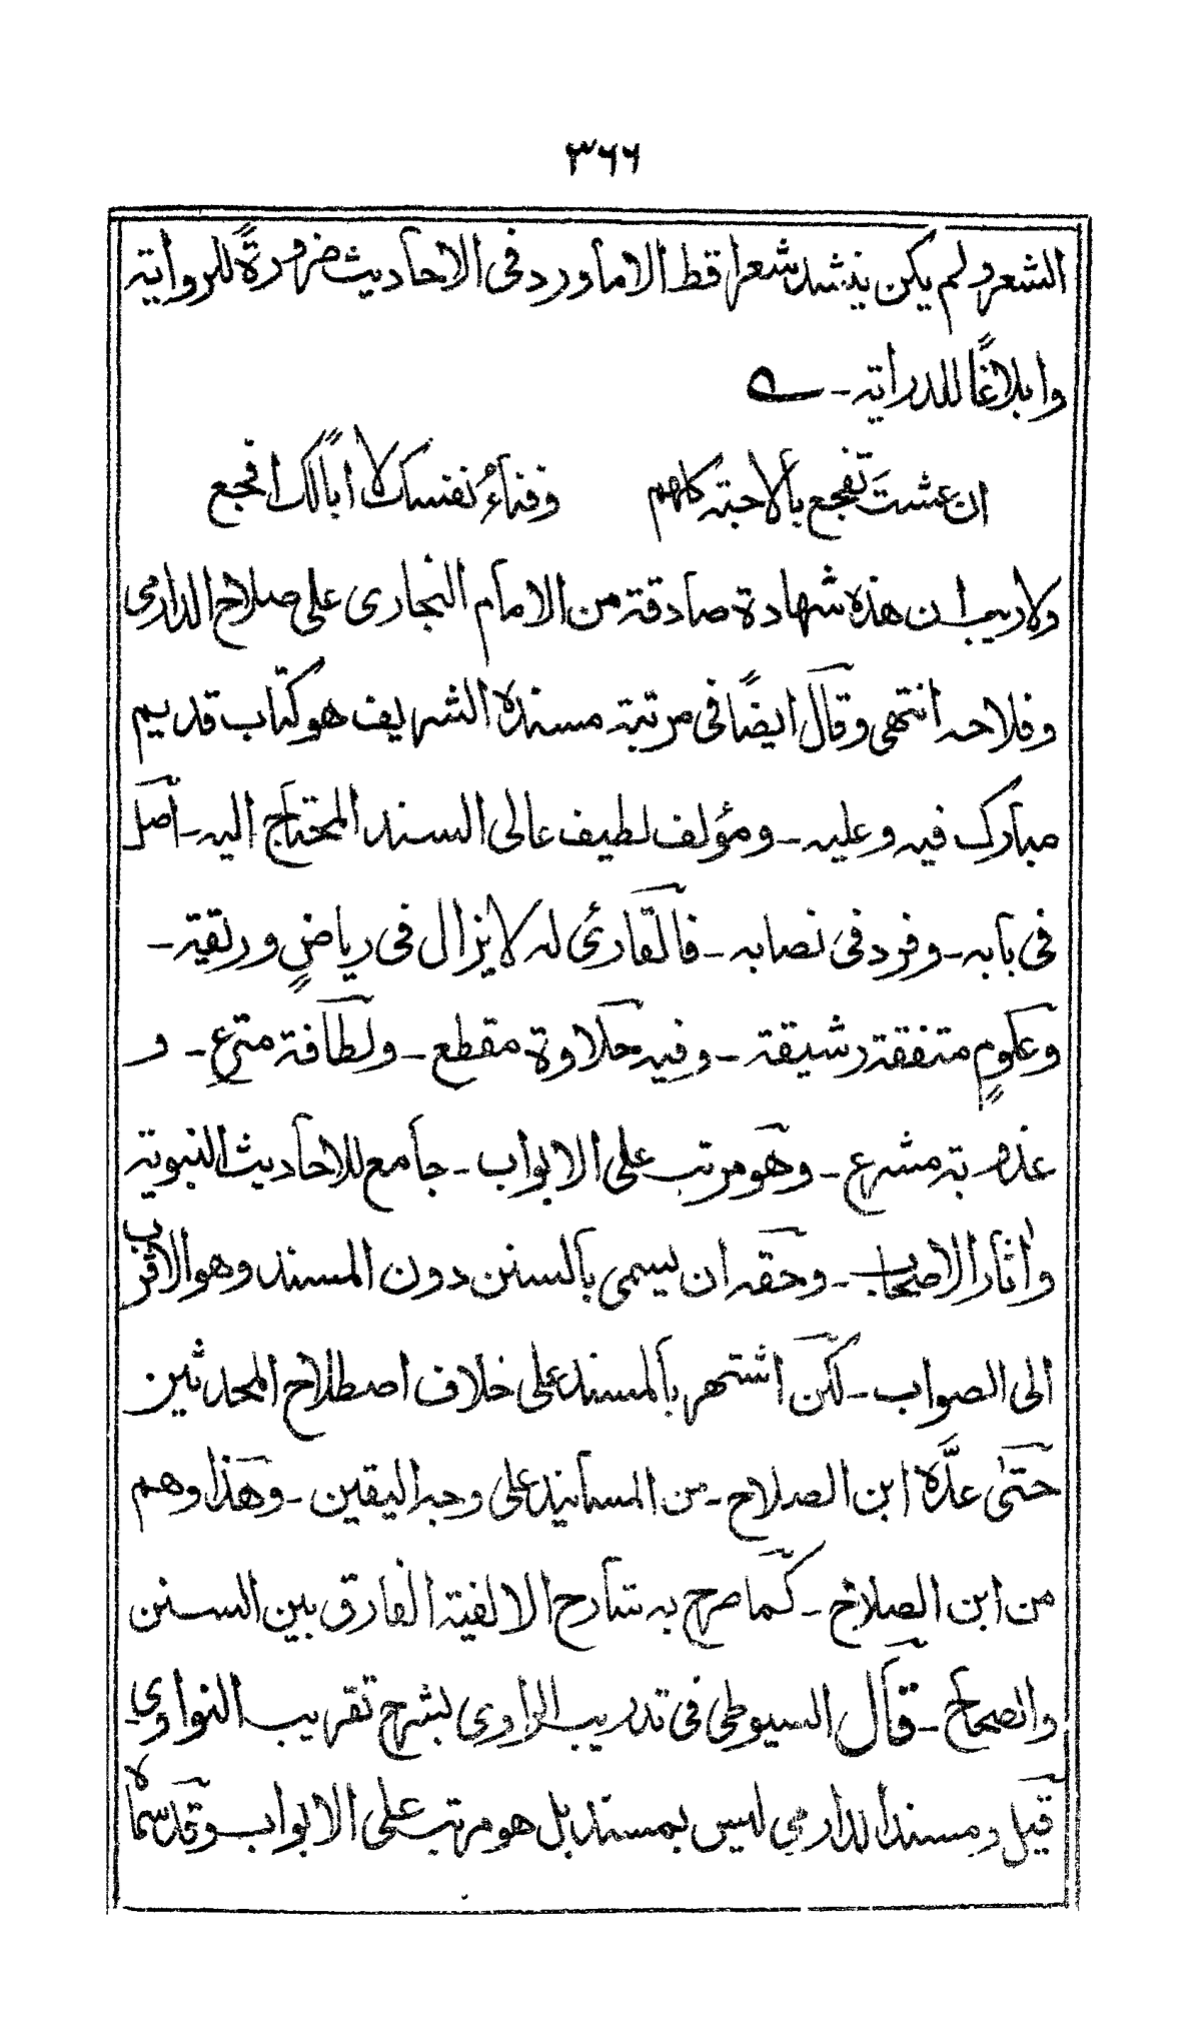 ٣٦٦
الشعر ولم يكن ينشد شعرا قط الا ما ورد فى الاحاديث ضرورةً للرواية
وابلاغًا للدراية ـ
ان عشتَ تفجع بالاحبة كلهم وفناءُ نفسك لا ابًا لك افجع
ولا ريب ان هذه شهادة صادقة من الامام البخارى على صلاح الدارمى
وفلاحه انتهى وقال ايضًا فى مرتبة مسنده الشريف هو كتاب قديم
مبارك فيه وعليه ـ ومؤلف لطيف عالى السند المحتاج اليه ـ اصل
فى بابه ـ وفرد فى نصابه ـ فالقارئ له لا يزال فى رياضٍ وريقة ـ
وعلومٍ متفقة رشيقة ـ وفيه حلاوة مقطع ـ ولطافة مترع ـ و
عذوبة مشرع ـ وهو مرتب على الابواب ـ جامع للاحاديث النبوية
واٰثار الاصحاب ـ وحقه ان يسمى بالسنن دون المسند وهو الاقرب
الى الصواب ـ لكن اشتهر بالمسند على خلاف اصطلاح المحدثين
حتىٰ عدَّه ابن الصلاح ـ من المسانيد على وجه اليقين ـ وهذا وهم
من ابن الصلاح ـ كما صرح به شارح الالفية الفارق بين السنن
والصحاح ـ قال السيوطى فى تدريب الراوى بشرح تقريب النواوى ـ
قيل ومسند الدارمى ليس بمسند بل هو مرتب على الابواب وقد سماه